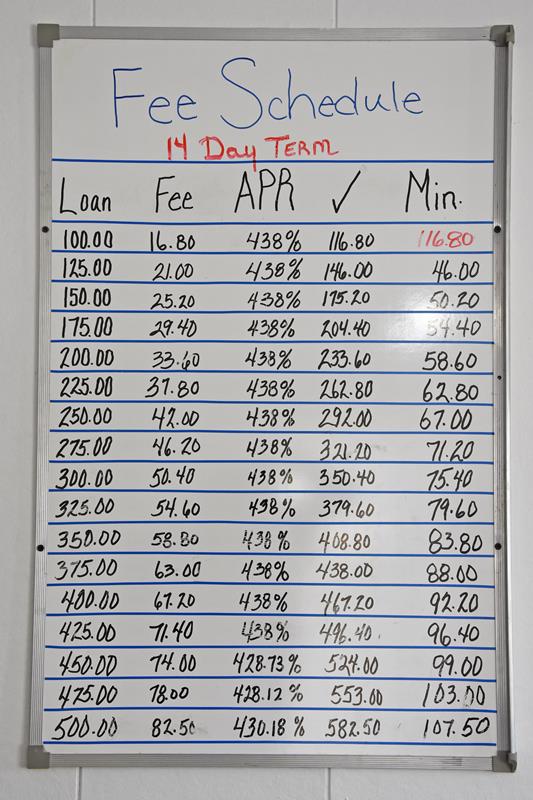 Fee Schedule
14 Day TERM
Loan Fee APR ✓ Min.
100.00 16.80 438% 116.80 116.80
125.00 21.00 438% 146.00 46.00
150.00 25.20 438% 175.20 50.20
175.00 29.40 438% 204.40 54.40
200.00 33.60 438% 233.60 58.60
225.00 37.80 438% 262.80 62.80
250.00 42.00 438% 292.00 67.00
275.00 46.20 438% 321.20 71.20
300.00 50.40 438% 350.40 75.40
325.00 54.60 438% 379.60 79.60
350.00 58.80 438% 408.80 83.80
375.00 63.00 438% 438.00 88.00
400.00 67.20 438% 467.20 92.20
425.00 71.40 438% 496.40 96.40
450.00 74.00 428.73% 524.00 99.00
475.00 78.00 428.12% 553.00 103.00
500.00 82.50 430.18% 582.50 107.50